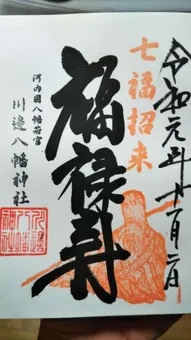 令和元年十一月二日
七福招来
福禄寿
河内國八幡若宮
川邊八幡神社
川邊八幡神社